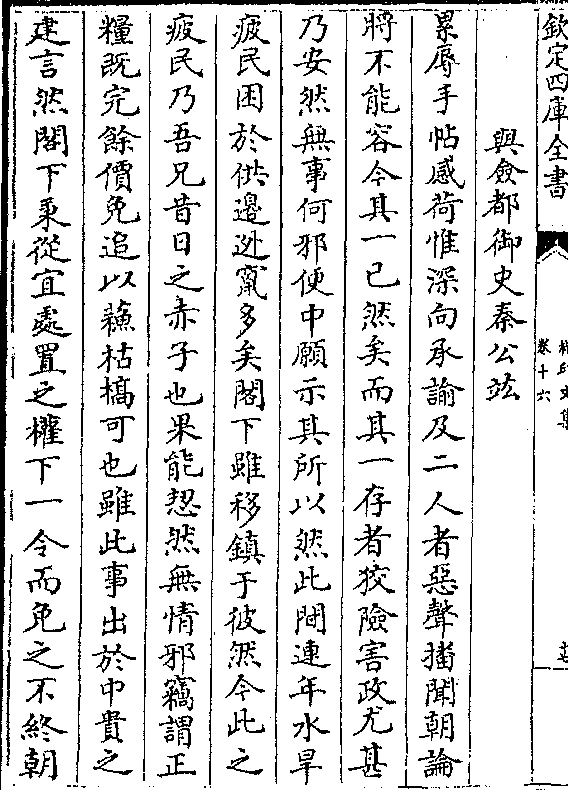 欽定四庫全書
卷十六
與僉都御史秦公竑
累辱手帖感荷惟深向承諭及二人者惡聲播聞朝論
將不能容今其一已然矣而其一存者狡險害政尤甚
乃安然無事何邪便中願示其所以然此間連年水旱
疲民困於供邊迯竄多矣閣下雖移鎮于彼然今此之
疲民乃吾兄昔日之赤子也果能恝然無情邪竊謂正
糧既完餘價免追以蘓枯槁可也雖此事出於中貴之
建言然閣下秉從宜處置之權下一令而免之不終朝